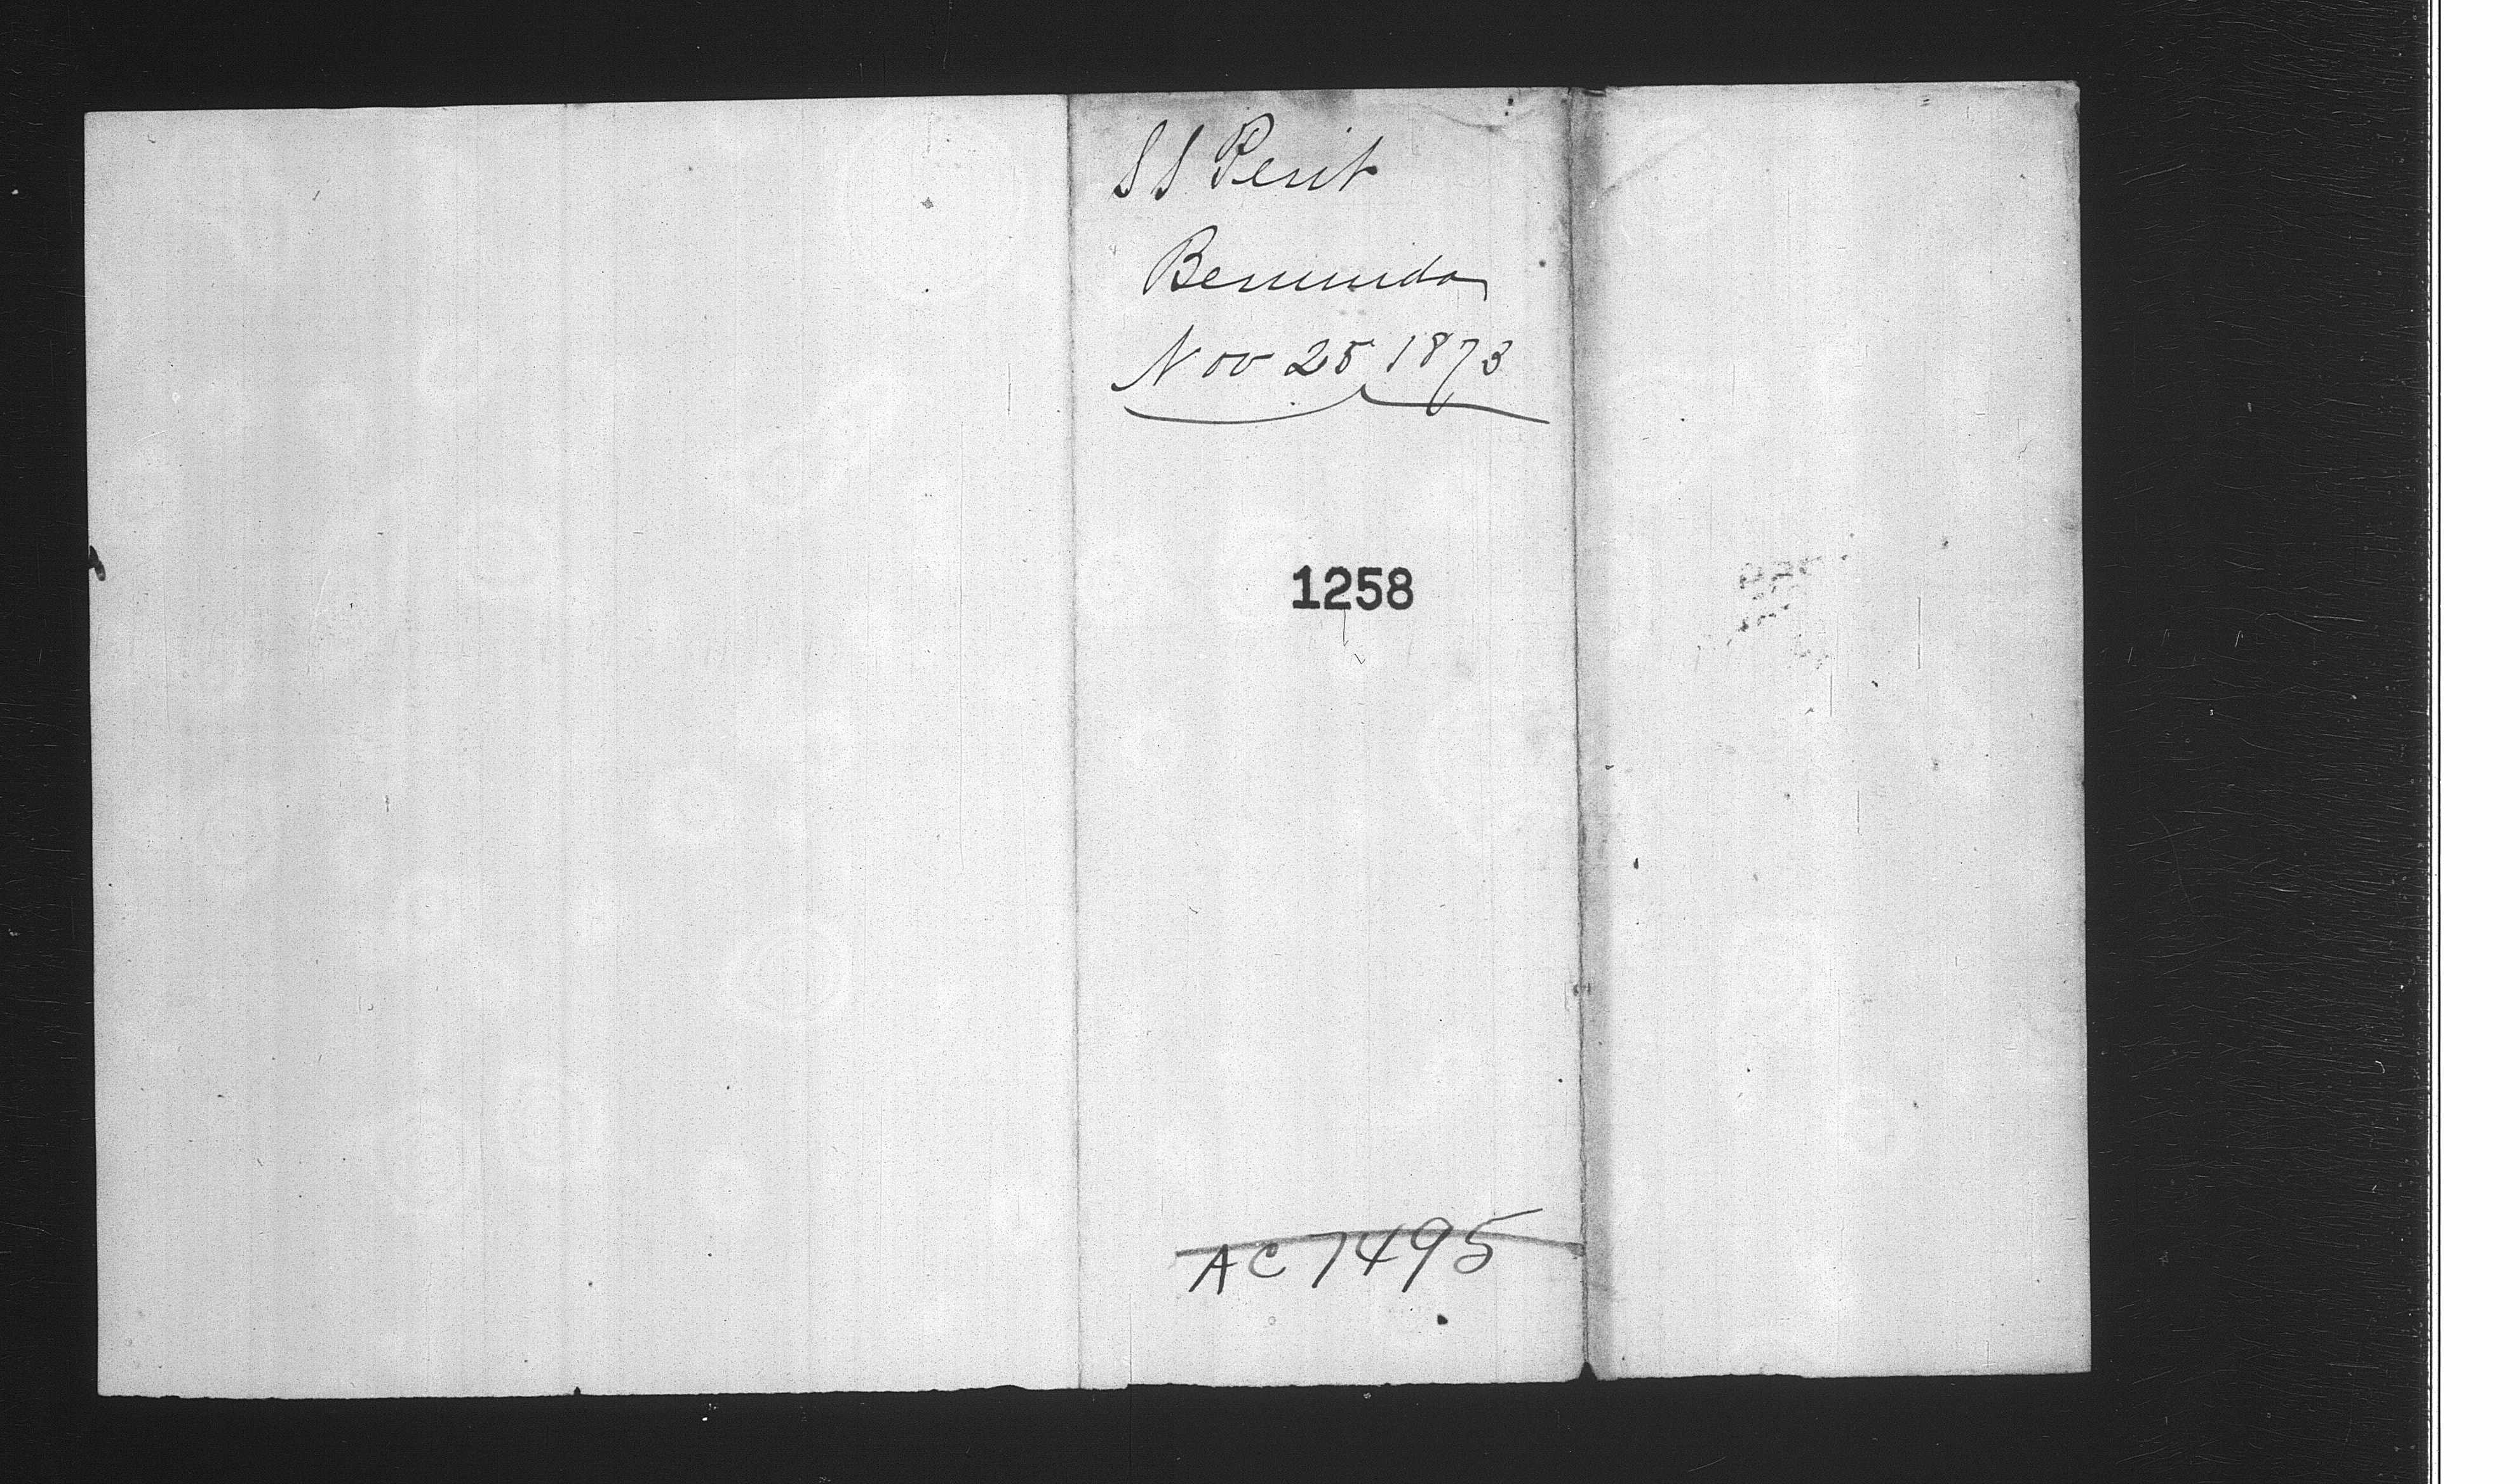 SS Perit
Bermuda
Nov 25 1873
1258
AC 7495